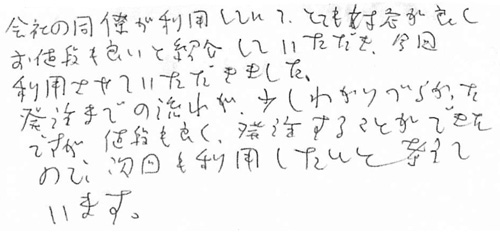 会社の同僚が利用していて、とても対応が良く
お値段も良いと紹介していただき、今回
利用させていただきました。
発注までの流れが、少しわかりづらかった
ですが、値段も良く、発注することができた
ので、次回も利用したいと考えて
います。